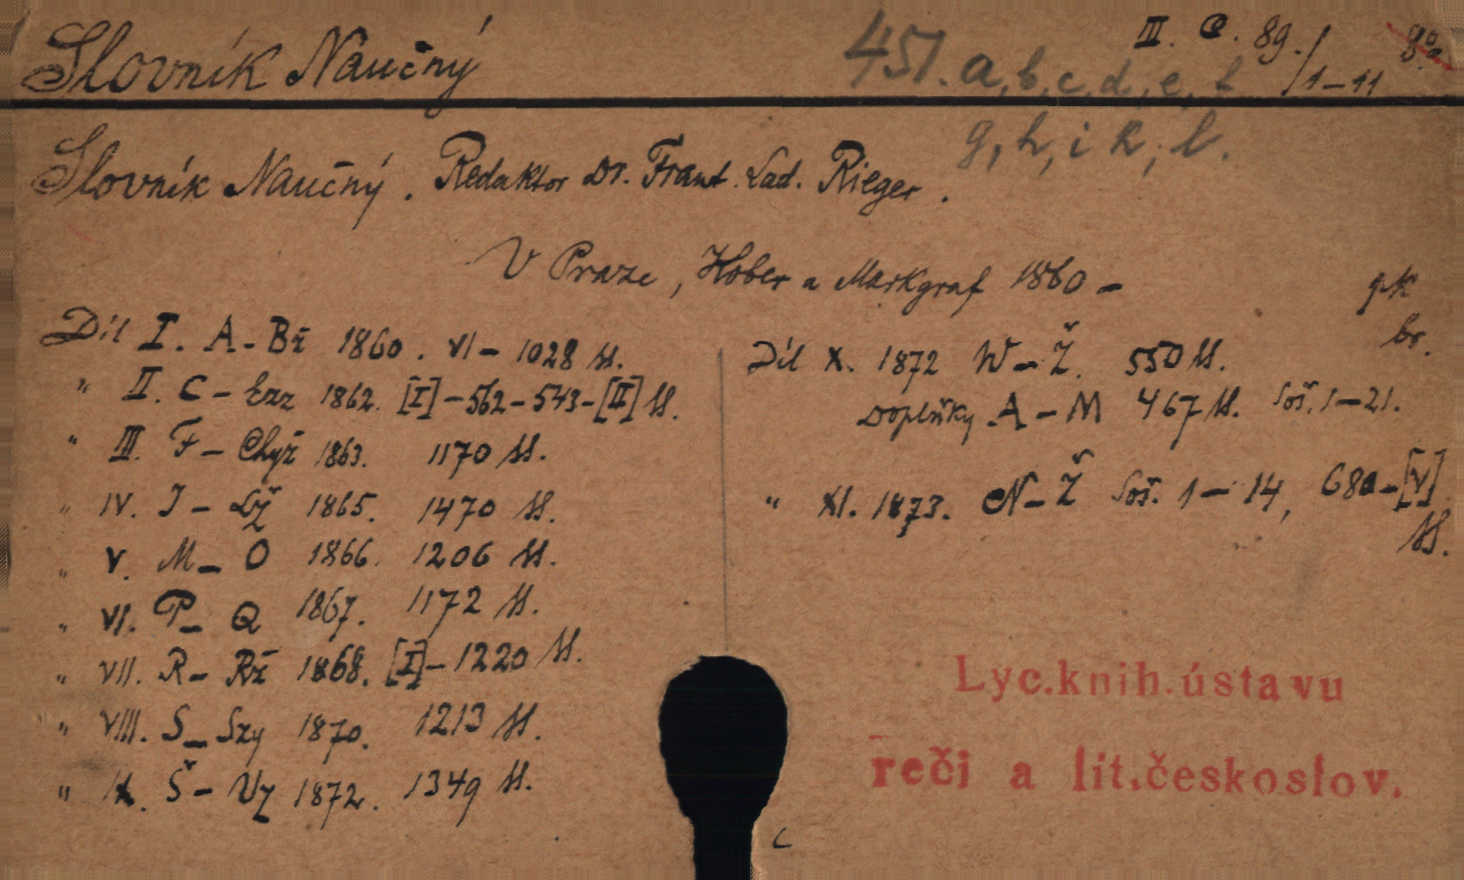 Slovník Naučný
451. a, b, c, d, e, f
g, h, i k, l.
III. C. 89./1–11
Slovník Naučný. Redaktor Dr. Frant. Lad. Rieger.
V Praze, Kober a Markgraf 1860 –
br.
Díl I. A – Bž 1860. VI – 1028 ss.
" II. C – Ezz 1862. [I] – 562 – 543 – [II] ss.
" III. F – Chyž 1863. 1170 ss.
" IV. J – Lž 1865. 1470 ss.
" V. M – O 1866. 1206 ss.
" VI. P – Q 1867. 1172 ss.
" VII. R – Rž 1868. [I] – 1220 ss.
" VIII. S – Szy 1870. 1213 ss.
" IX. Š – Vz 1872. 1349 ss.
Díl X. 1872 W – Ž. 550 ss.
Doplňky A – M 467 ss. Soš. 1 – 21.
" XI. 1873. N – Ž Soš. 1 – 14, 680 – [V]
ss.
Lyc.knih.ústavu
reči a lit.českoslov.